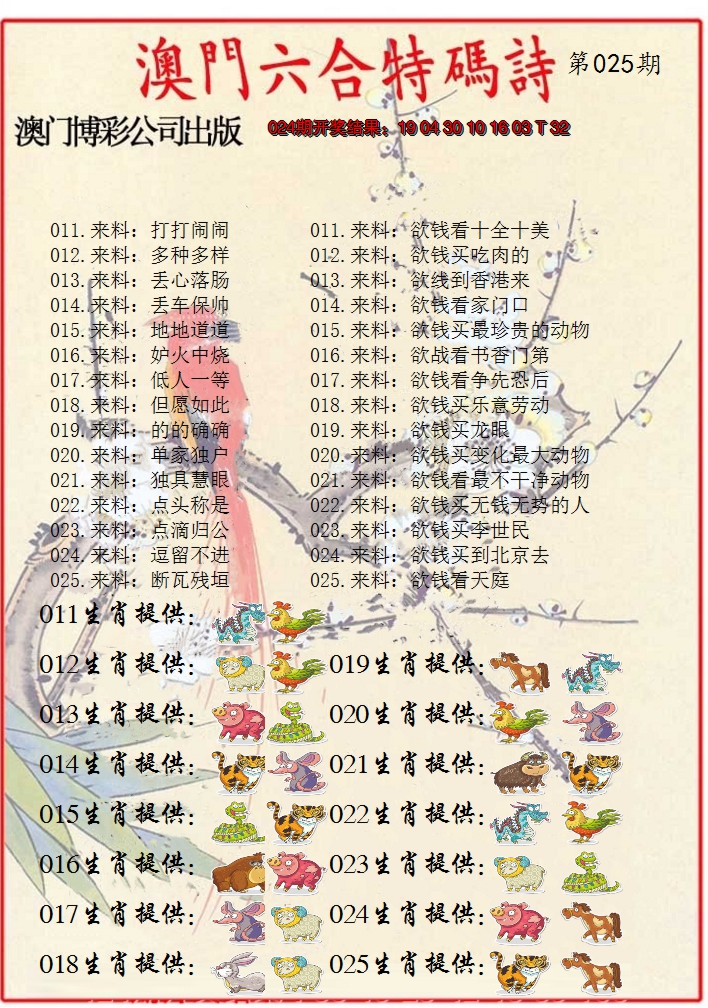 澳門六合特碼詩 第025期
澳门博彩公司出版 024期开奖结果：19 04 30 10 16 03 T 32
011.来料：打打闹闹 011.来料：欲钱看十全十美
012.来料：多种多样 012.来料：欲钱买吃肉的
013.来料：丢心落肠 013.来料：欲线到香港来
014.来料：丢车保帅 014.来料：欲钱看家门口
015.来料：地地道道 015.来料：欲钱买最珍贵的动物
016.来料：妒火中烧 016.来料：欲战看书香门第
017.来料：低人一等 017.来料：欲钱看争先恐后
018.来料：但愿如此 018.来料：欲钱买乐意劳动
019.来料：的的确确 019.来料：欲钱买龙眼
020.来料：单家独户 020.来料：欲钱买变化最大动物
021.来料：独具慧眼 021.来料：欲钱看最不干净动物
022.来料：点头称是 022.来料：欲钱买无钱无势的人
023.来料：点滴归公 023.来料：欲钱买李世民
024.来料：逗留不进 024.来料：欲钱买到北京去
025.来料：断瓦残垣 025.来料：欲钱看天庭
011生肖提供：
012生肖提供： 019生肖提供：
013生肖提供： 020生肖提供：
014生肖提供： 021生肖提供：
015生肖提供： 022生肖提供：
016生肖提供： 023生肖提供：
017生肖提供： 024生肖提供：
018生肖提供： 025生肖提供：